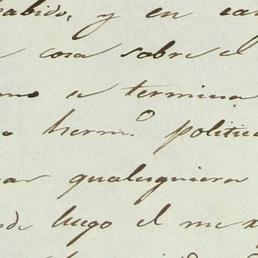 habido, y en ca
cosa sobre el
mo se termina
herm.o politic
qualesquiera
luego el me